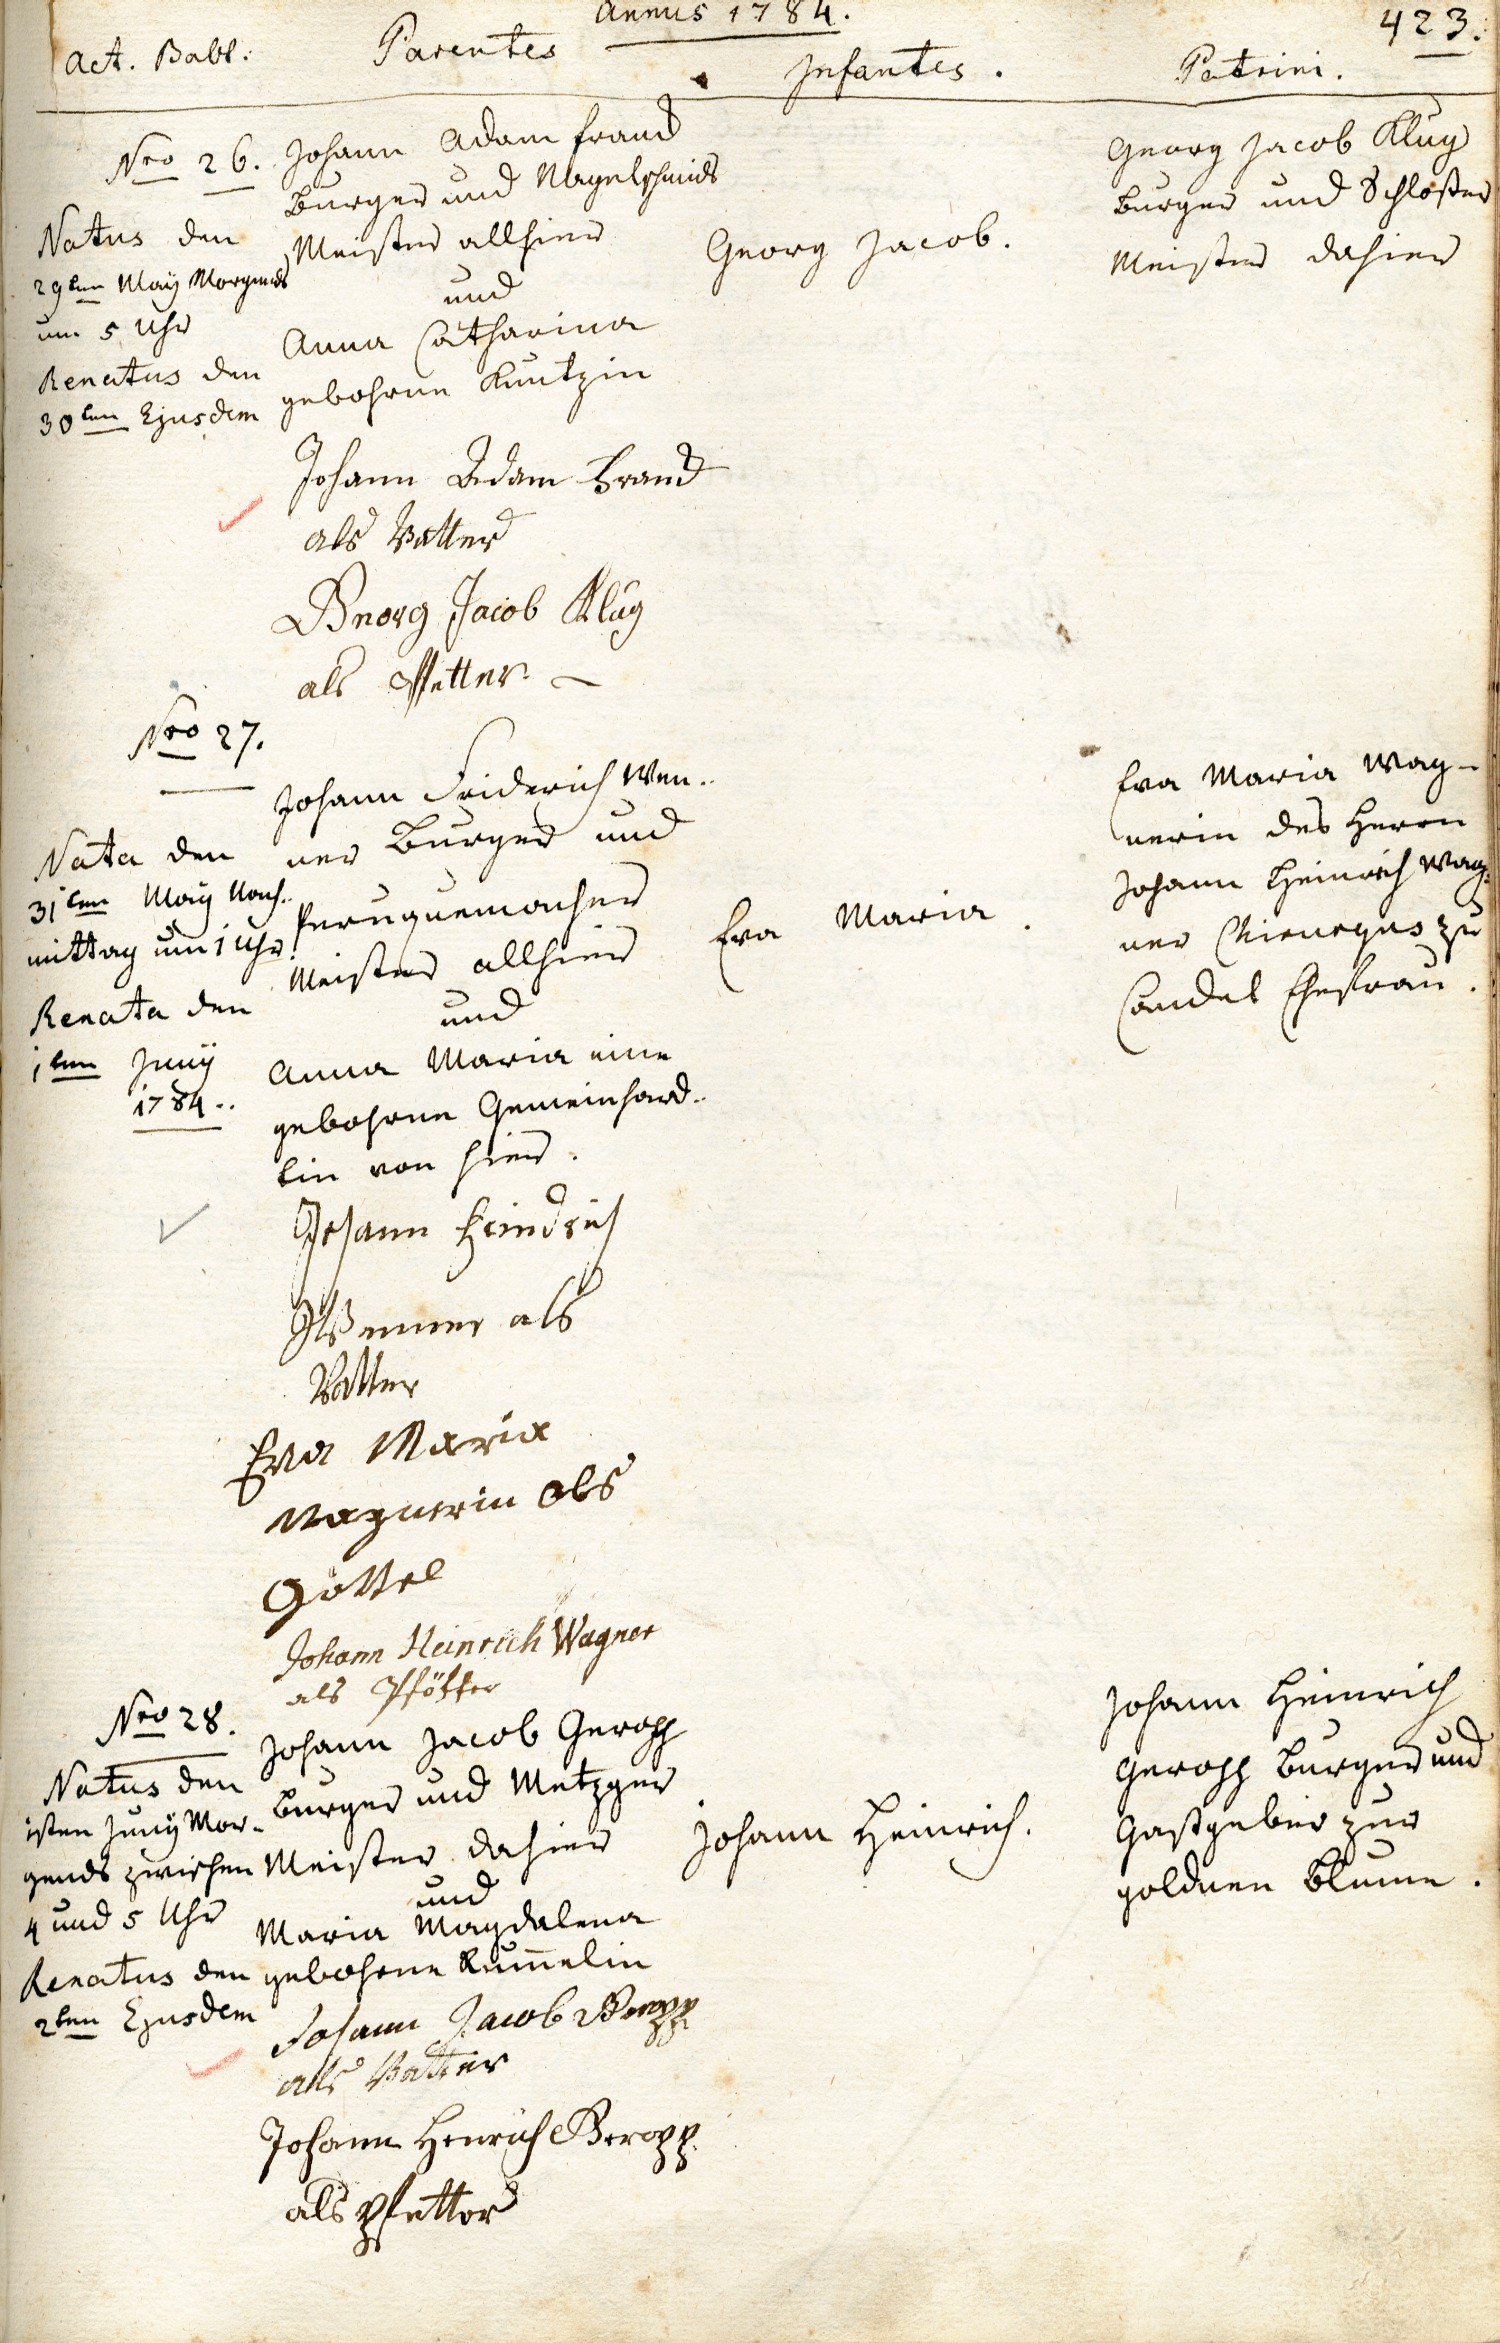 Annus 1784.
423.
Act. Babt:
Parentes
Infantes.
Patrini.
Nro 26.
Natus den
29ten May Morgends
um 5 Uhr
Renatus den
30ten Ejusdem
Johann Adam Frand
Burger und Nagelschmidt
Meister allhier
und
Anna Catharina
gebohrne Kuntzin
Georg Jacob.
Georg Jacob Klug
Burger und Schloßer
Meister dahier
Johann Adam
als Vatter
Georg Jacob Klug
als Pfetter
Nro 27.
Nata den
31ten May Nach-
mittag um 1 Uhr
Renata den
1ten Juny
1784..
Johann Friderich Wen-
ner Burger und
Peruquemacher
Meister allhier
und
Anna Maria eine
gebohrne Gemeinhard-
tin von hier.
Eva Maria.
Eva Maria Wag-
nerin des Herrn
Johann Heinrich Wag-
ner Chirurgus zu
Candel Ehefrau.
Johann Frindrich
Wenner als
Vatter
Eva Maria
Wagnerin als
Göttel
Johann Heinrich Wagner
als Pfötter
Nro 28.
Natus den
1sten Juny Mor-
gends zwischen
4 und 5 Uhr
Renatus den
2ten Ejusdem
Johann Jacob Geropp
Burger und Metzger
Meister dahier
und
Maria Magdalena
gebohrne Rum̄elin
Johann Heinrich.
Johann Heinrich
Geropp Burger und
Gastgeber zur
goldnen Blume.
Johann Jacob Geropp
als Vatter
Johann Henrich Geropp
als Pfetter